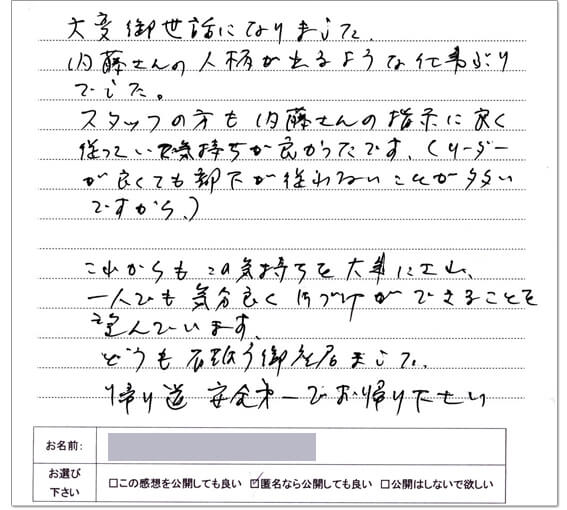 大変御世話になりました。
内藤さんの人柄が出るような仕事ぶり
でした。
スタッフの方も内藤さんの指示に良く
従っていて気持ちが良かったです。(リーダー
が良くても部下が従わないことが多い
ですから。)
これからもこの気持ちを大事に
一人でも気分良く片づけができることを
望んでいます。
どうも有難う御座居ました。
帰り道 安全第一でお帰り下さい
お名前:
お選び下さい □この感想を公開しても良い ☑匿名なら公開しても良い □公開はしないで欲しい